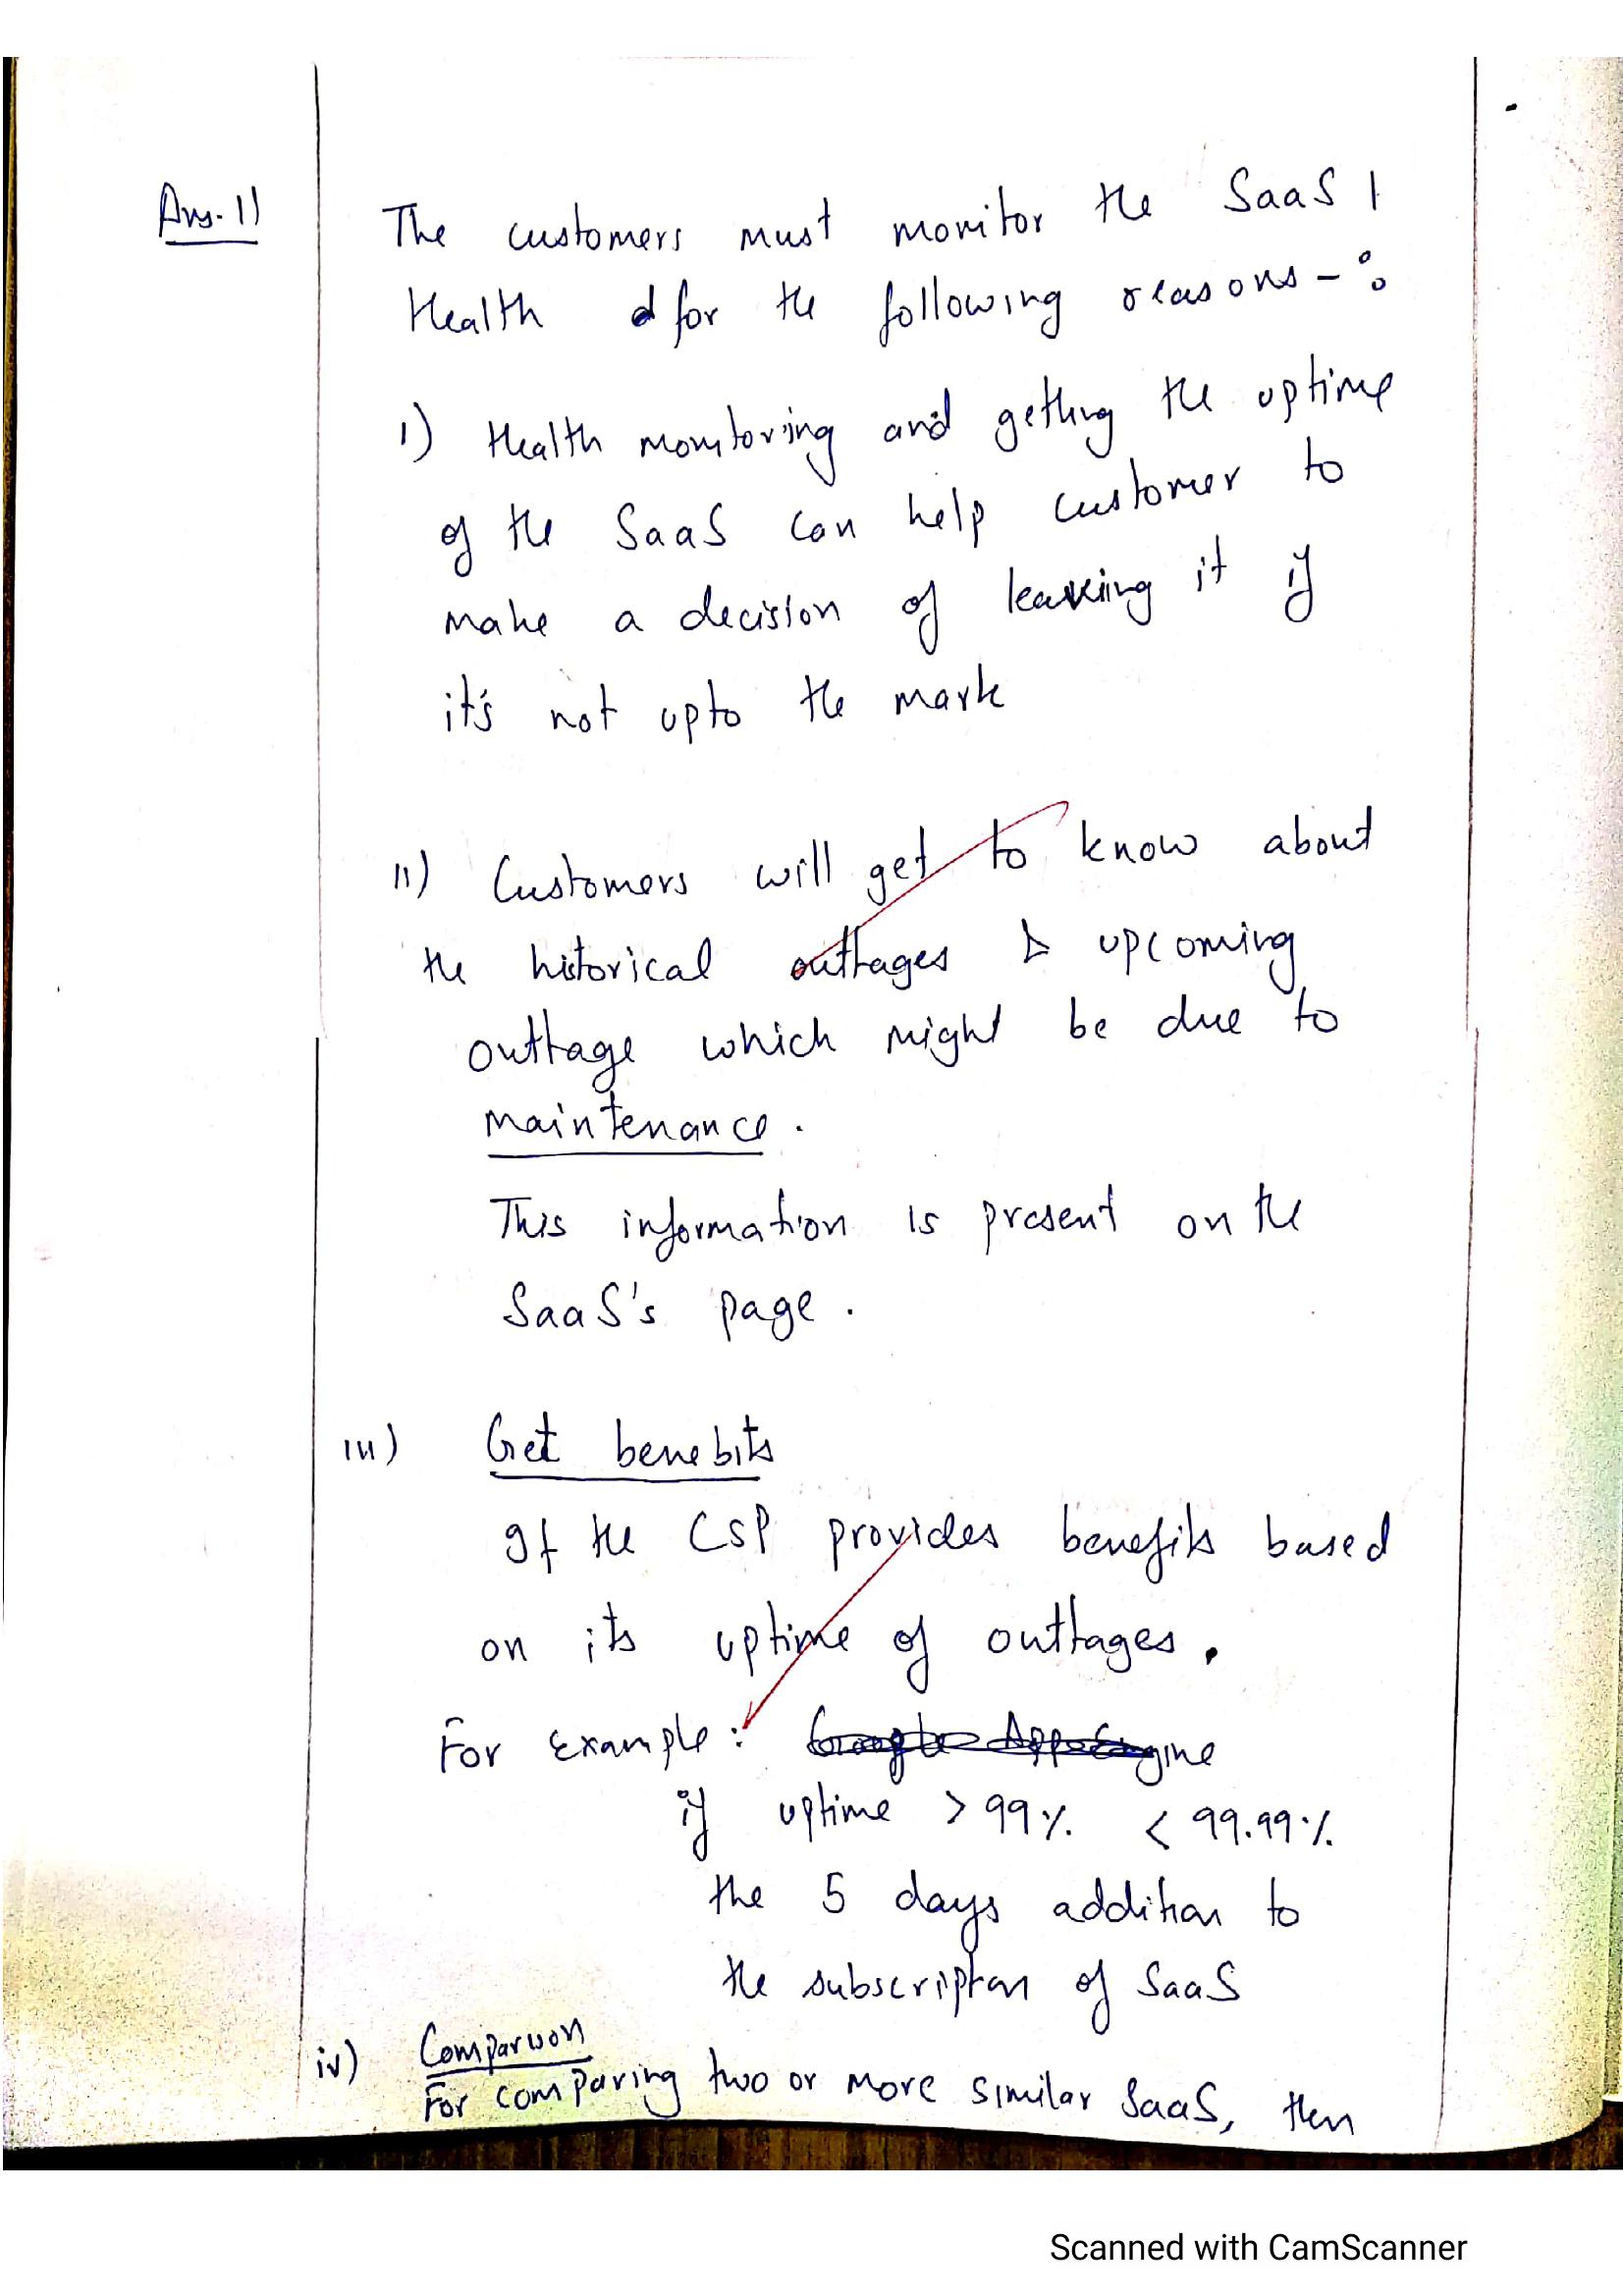 Ans. 1)
The customers must monitor the SaaS |
Health for the following reasons - :
i) Health monitoring and getting the uptime
of the SaaS can help customer to
make a decision of leaving it if
it's not upto the mark
ii) Customers will get to know about
the historical outtages & upcoming
outtage which might be due to
maintenance.
This information is present on the
SaaS's page.
iii) Get benebits
If the CSP provides benefits based
on its uptime of outtages.
For Example :
if uptime > 99% < 99.99%
the 5 days addition to
the subscription of SaaS
iv) Comparison
For comparing two or more similar SaaS, then
Scanned with CamScanner